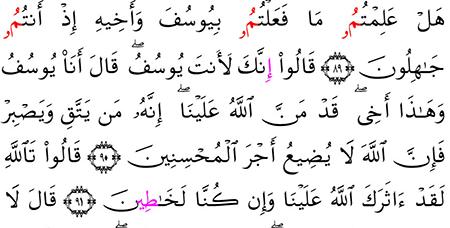 هَلۡ عَلِمۡتُمُۥ مَا فَعَلۡتُمُۥ بِيُوسُفَ وَأَخِيهِ إِذۡ أَنتُمُۥ
جَٰهِلُونَ ۝٨٩ قَالُوٓاْ إِنَّكَ لَأَنتَ يُوسُفُۖ قَالَ أَنَا۠ يُوسُفُ
وَهَٰذَآ أَخِيۖ قَدۡ مَنَّ ٱللَّهُ عَلَيۡنَآۖ إِنَّهُۥ مَن يَتَّقِ وَيَصۡبِرۡ
فَإِنَّ ٱللَّهَ لَا يُضِيعُ أَجۡرَ ٱلۡمُحۡسِنِينَ ۝٩٠ قَالُواْ تَٱللَّهِ
لَقَدۡ ءَاثَرَكَ ٱللَّهُ عَلَيۡنَا وَإِن كُنَّا لَخَٰطِينَ ۝٩١ قَالَ لَا